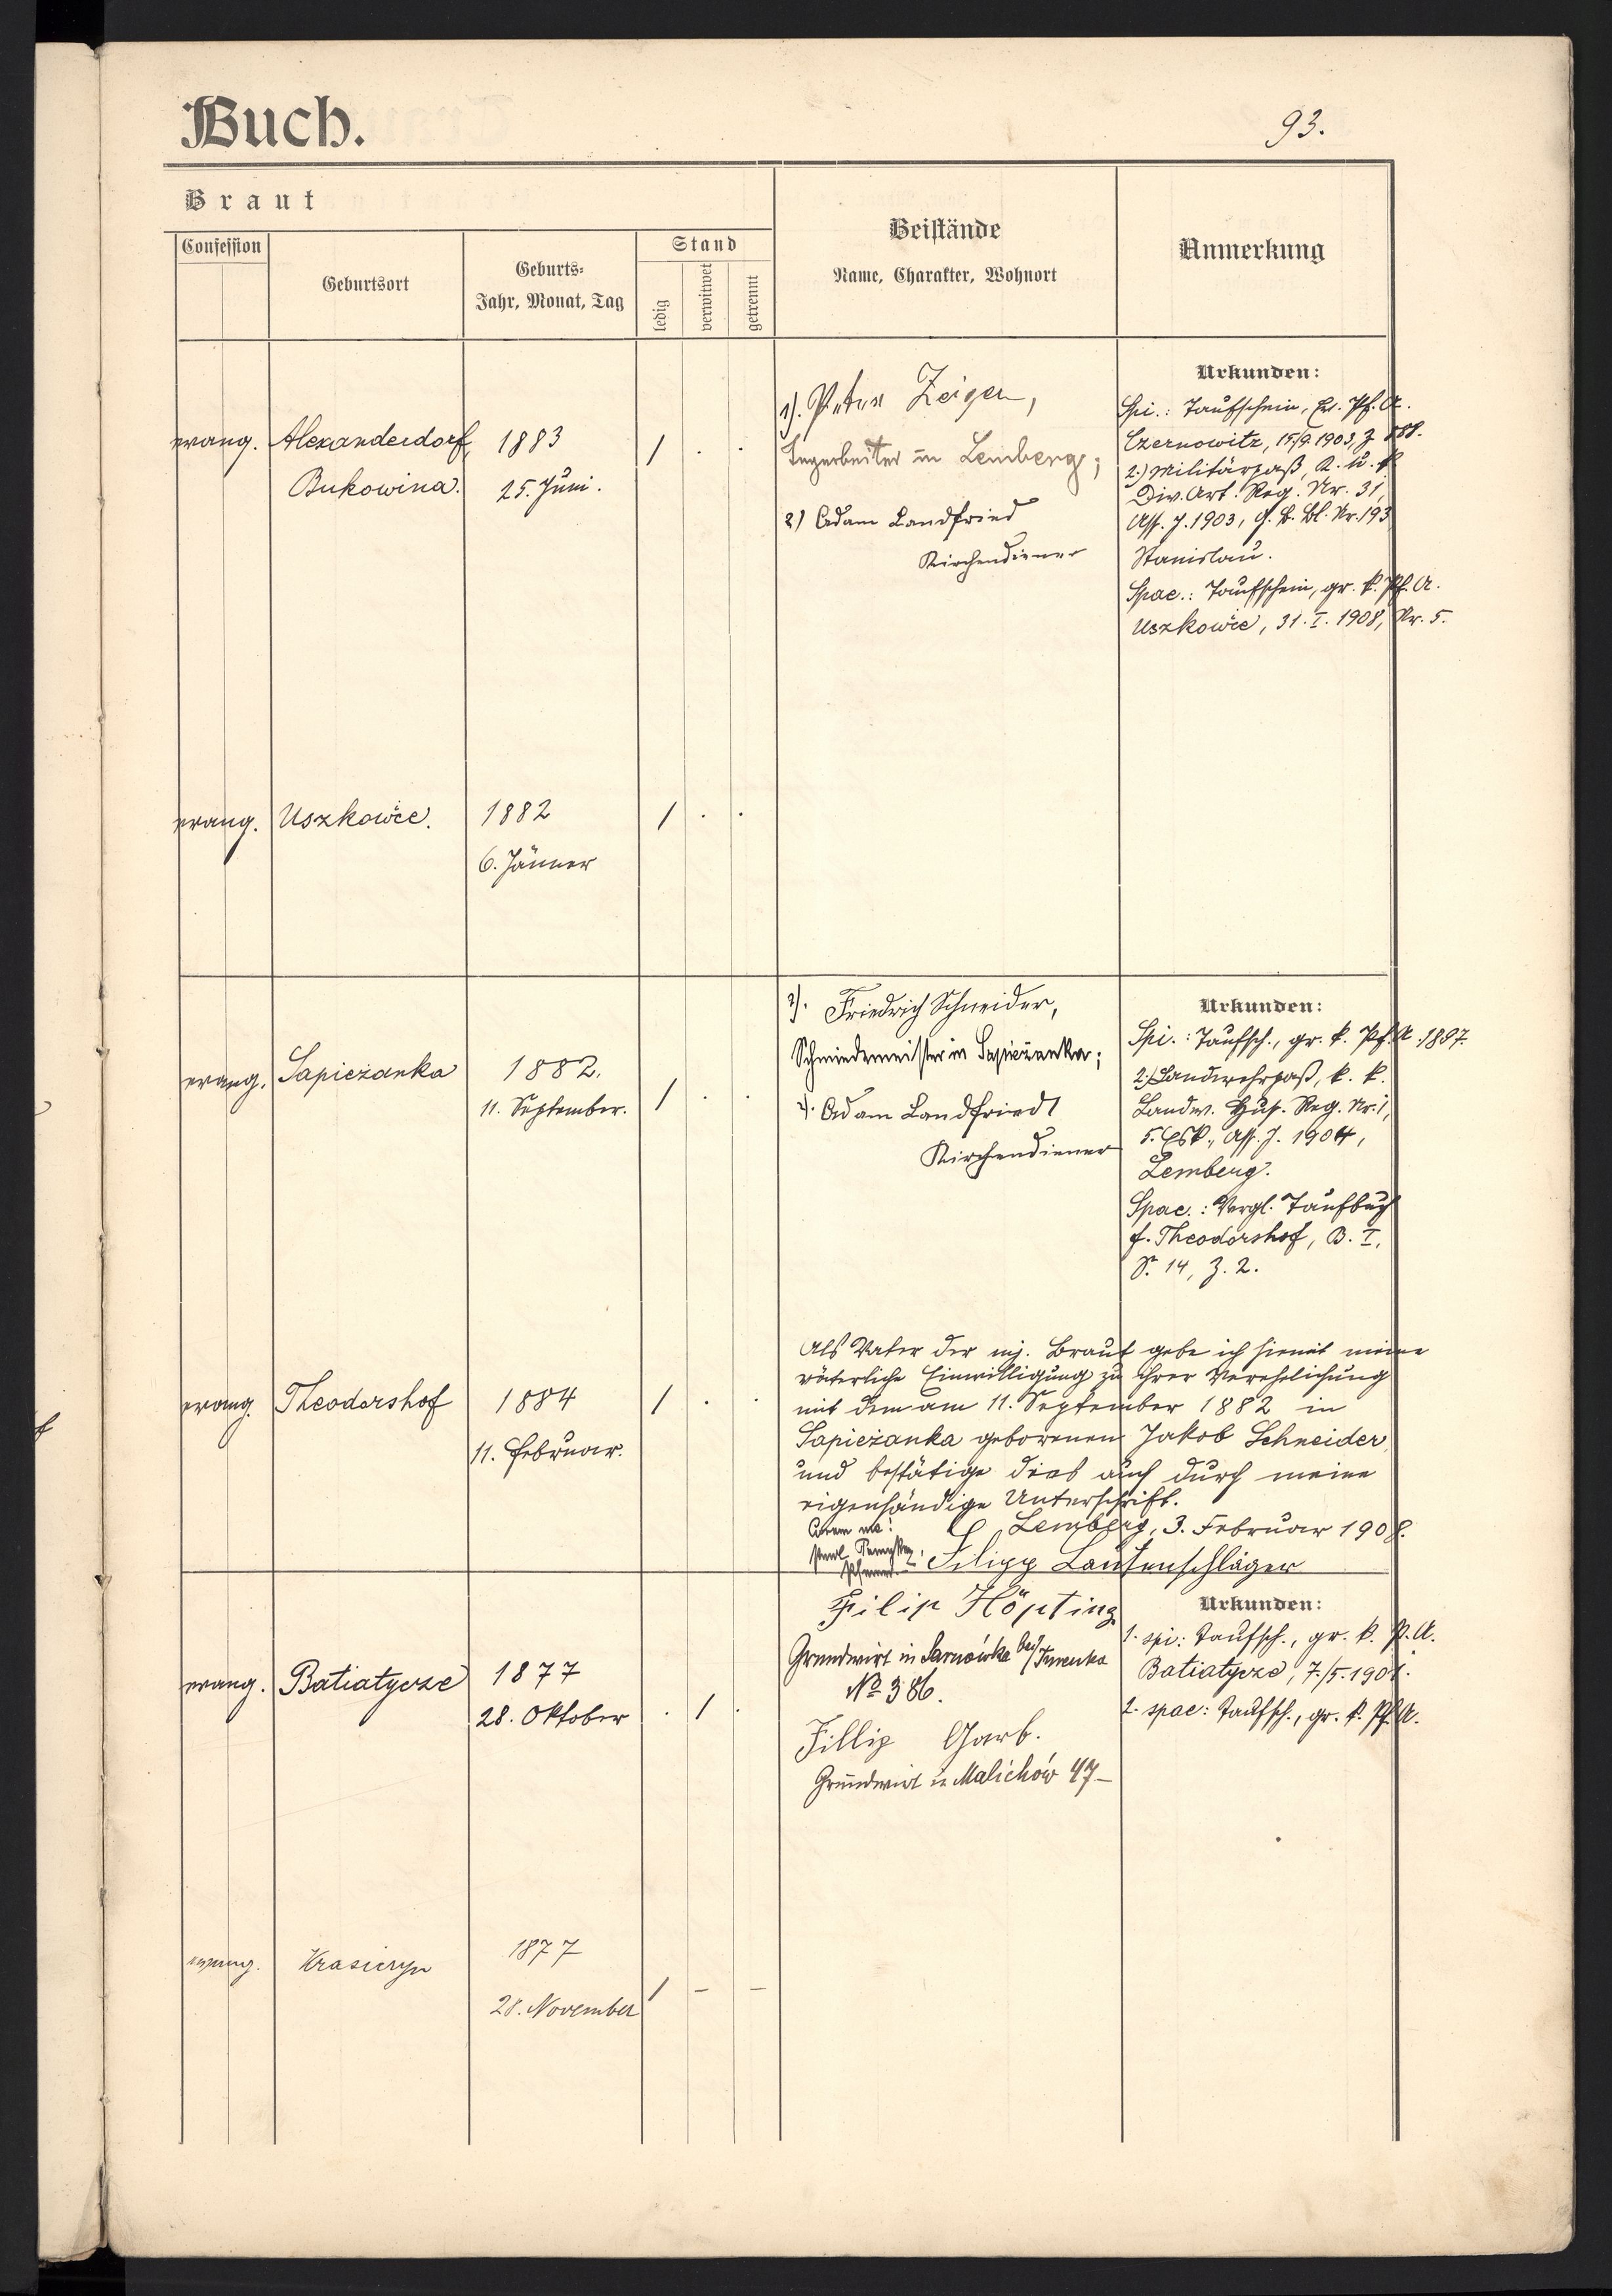 Buch.
93.
Braut
Confession
Geburtsort
Geburts-
Jahr, Monat, Tag
Stand
ledig
verwitwet
getrennt
Beistände
Name, Charakter, Wohnort
Anmerkung
evang.
Alexanderdorf,
Bukowina.
1883
25. Juni.
1 . .
1). Peter Zeiger,
in Lemberg;
2) Adam Landfried
Kirchendiener
Urkunden:
Spi.: Taufschein, Ev. Pf. A.
Czernowitz, 15/9. 1903, Z 888.
2.) Militärpaß, K. u. k.
Div. Art. Reg. Nr. 31,
Ass. J. 1903, G. B. Bl. Nr. 193
Stanislau.
Spae.: Taufschein, gr. k. Pf. A.
Uszkowice, 31. I. 1908, Nr. 5.
evang.
Uszkowice.
1882
6. Jänner
1 . .
evang.
Sapieżanka
1882.
11. September.
1 . .
1). Friedrich Schneider,
Schmiedemeister in Sapieżanka;
2). Adam Landfried
Kirchendiener
Urkunden:
Spi.: Taufsch., gr. k. Pf. A. 1897.
2.) Landwehrpaß, k. k.
Landw. Hus. Reg. Nr. 1,
5. Esk., Ass. J. 1904,
Lemberg.
Spae.: Vergl. Taufbuch
f. Theodorshof, B. I,
S. 14, Z. 2.
evang.
Theodorshof
1884
11. Februar.
1 . .
Als Vater der mj. Braut gebe ich hiemit meine
väterliche Einwilligung zu ihrer Verehelichung
mit dem am 11. September 1882 in
Sapieżanka geborenen Jakob Schneider
und bestätige dies auch durch meine
eigenhändige Unterschrift.
Coram me:
Lemberg, 3. Februar 1908.
Filipp Lautenschläger
evang.
Batiatycze
1877
28. Oktober
. 1 .
Filip Höpting
Grundwirt in Sarnówka bei
No 386.
Fillip Garb.
Grundwirt in Malichów 47–
Urkunden:
1. spi: Taufsch., gr. k. P. A.
Batiatycze, 7./5. 1901.
2. spae: Taufsch., gr. k. Pf. A.
evang.
Krasiczyn
1877
28. November
1 – –